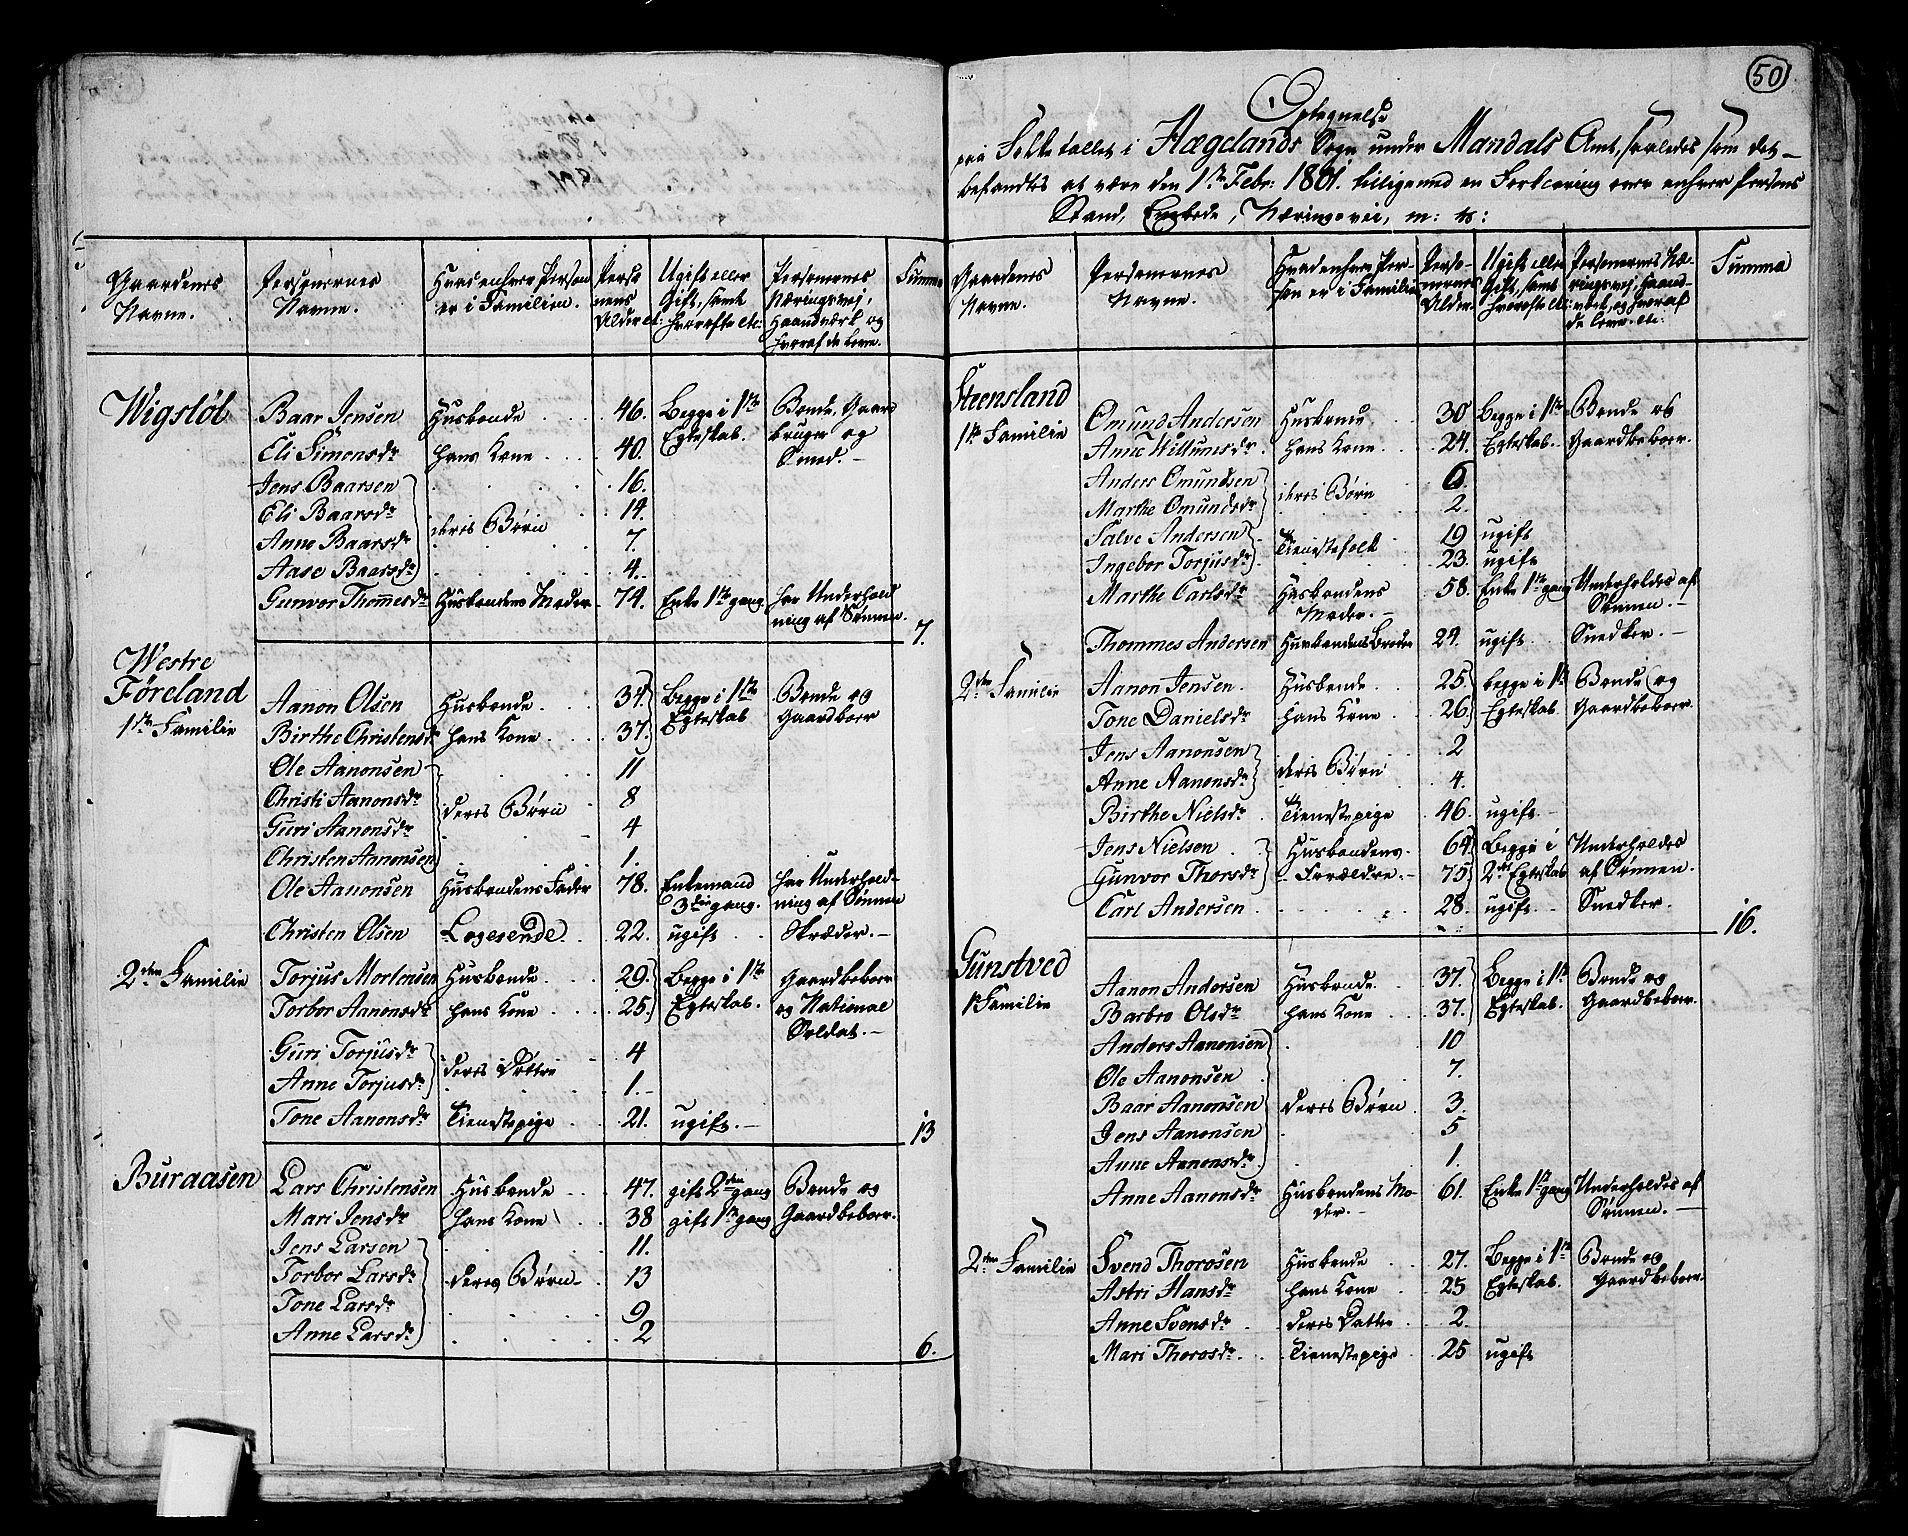 Gaardenes Navne.
Personernes Navne.
Hvad enhver Person er i Familien.
Personens Alder etc:
Ugift eller Gift, samt hvorofte etc:
Personernes Næringsvej, Haandværk, og hvoraf de leve.
Summa
Wigsløb
Baar Jensen Husbonde 46. Begge i 1ste Bonde, Gaard
Eli Simonsdr hans Kone 40. Egteskab. bruger og
Smed.
Jens Baarsen 16.
Eli Baarsdr 14.
deres Børn
Anne Baarsdr 7.
Aase Baarsdr 4.
Gunvor Thommesdr Husbondens Moder 74. Enke 1ste gang har Underhold
ning af Sønnen. 7.
Westre
Føreland
1ste Familie
Aanon Olsen Husbonde 34. Begge i 1ste Bonde og
Birthe Christensdr hans Kone 37. Egteskab Gaardboer
Ole Aanonsen 11
Christi Aanonsdr deres Børn 8
Guri Aanonsdr 4
Christen Aanonsen 1.
Ole Aanonsen Husbondens Fader 78. Enkemand har Underhold-
3die gang. ning af Sønnen
Christen Olsen Logerende 22. ugift Skræder.
2den Familie
Torjus Mortensen Husbonde 29. Begge i 1ste Gaardbeboer
Torbor Aanonsdr hans Kone 25. Egteskab. og National
Soldat.
Guri Torjusdr 4
deres Døttre
Anne Torjusdr 1.
Tone Aanonsdr Tienestepige 21. ugift. 13
Buraasen
Lars Christensen Husbonde 47. gift 2den gang Bonde og
Mari Jensdr hans Kone 38 gift 1ste gang Gaardbeboer.
Jens Larsen 11.
Torbor Larsdr deres Børn 13
Tone Larsdr 9
Anne Larsdr 2 6.
50
Optegnelse
paa Folketallet i Hægelands Sogn under Mandals Amt, saaledes som det
befandtes at være den 1ste Febr: 1801. tilligemed en Forklaring over enhver Persons
Stand, Embede, Næringsvei, m: v:
Gaardenes Navne.
Personernes Navne.
Hvad enhver Person er i Familien
Personernes Alder.
Ugift eller Gift, samt hvorofte etc:
Personernes Næringsvej, Haandværk, og hvoraf de leve. etc:
Summa
Steensland
1ste Familie
Omund Andersen Husbonde 30 Begge i 1ste Bonde og
Anne Willumsdr hans Kone 24. Egteskab. Gaardbeboer.
Anders Omundsen 6
deres Børn
Marthe Omundsdr 2.
Salve Andersen 19 ugift
Tienestefolk
Ingebor Torjusdr 23. ugift
Marthe Carlsdr Husbondens 58. Enke 1ste gang Underholdes af
Moder. Sønnen.
Thommes Andersen Husbondens Broder 24. ugift Snedker.
2den Familie
Aanon Jensen Husbonde 25 begge i 1ste Bonde og
Tone Danielsdr hans Kone 26 Egteskab Gaardbeboer.
Jens Aanonsen 2
deres Børn
Anne Aanonsdr 4.
Birthe Nielsdr Tienestepige 46. ugift
Jens Nielsen Husbondens 64 Begge i Underholdes
Gunvor Thorsdr Forældre. 75 2det Egteskab af Sønnen.
Carl Andersen 28 ugift Snedker. 16.
Gunstved
1ste Familie
Aanon Andersen Husbonde 37. Begge i 1ste Bonde og
Barbro Olsdr hans Kone 37. Egteskab. Gaardbeboer.
Anders Aanonsen 10
Ole Aanonsen 7.
Baar Aanonsen deres Børn 3.
Jens Aanonsen 5
Anne Aanonsdr 1.
Anne Aanonsdr Husbondens Mo- 61. Enke 1ste gang Underholdes af
der. Sønnen.
2den Familie
Svend Thorosen Husbonde 27. Begge i 1ste Bonde og
Astri Hansdr hans Kone 25 Egteskab. Gaardbeboer.
Anne Svensdr deres Datter 2.
Mari Thorosdr Tienestepige 25 ugift